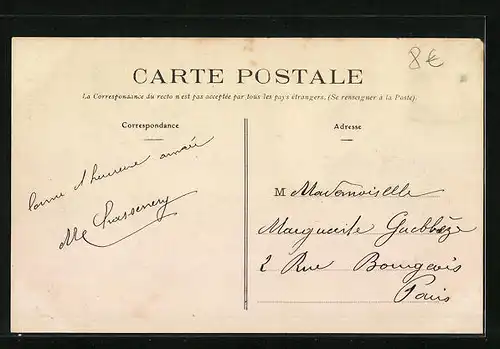 8€
CARTE POSTALE
La Correspondance du recto n'est pas acceptée par tous les pays étrangers. (Se renseigner à la Poste).
Correspondance
bonne et heureuse année
Mlle
Adresse
M Mademoiselle
Marguerite
2 Rue Bourgeois
Paris